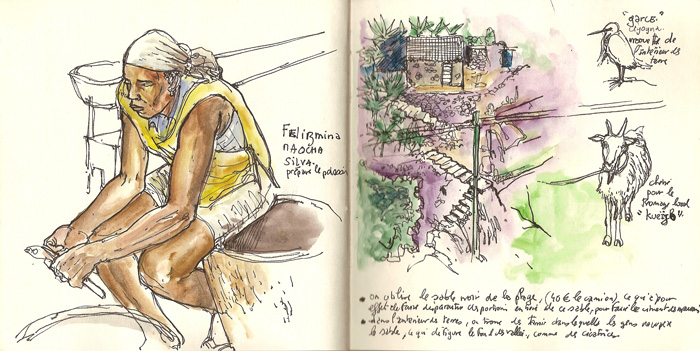 FELIRMINA
DA OCHA
SILVA.
prépare le poisson
"garce."
cigogne
mouette de
l'intérieur des
terre
chèvre
pour le
fromage local
"
on utilise le sable noir de la plage, (40 € le camion) ce qui a pour
effet de faire disparaitre des portions entière de ce sable, pour faire le ciment des
dans l'intérieur des terres, on trouve des dans laquelle les gens
le sable, ce qui défigure le fond des vallées, comme des cicatrice